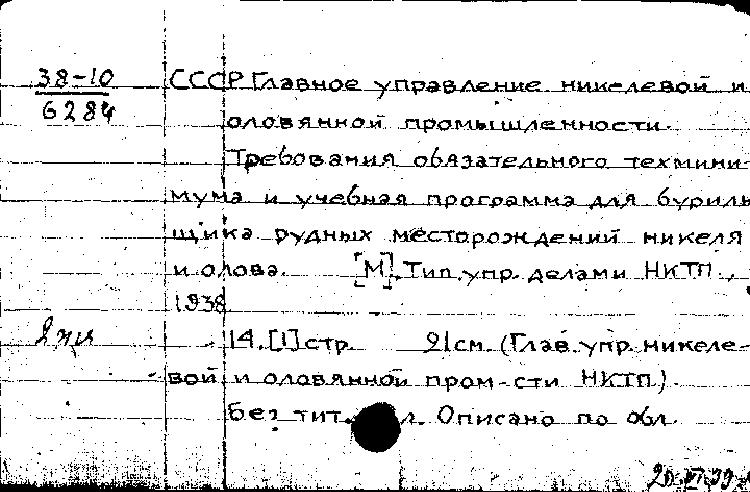 38-10
6284
СССР. Главное управление никелевой и
оловянной промышленности.
Требования обязательного техмини-
мума и учебная программа для буриль-
щика рудных месторождений никеля
и олова. [М]. Тип. упр. делами НКТП,
1938
14, [1] стр. 21 см. (Глав. упр. никеле-
вой и оловянной пром-сти НКТП).
без тит. л. Описано по обл.